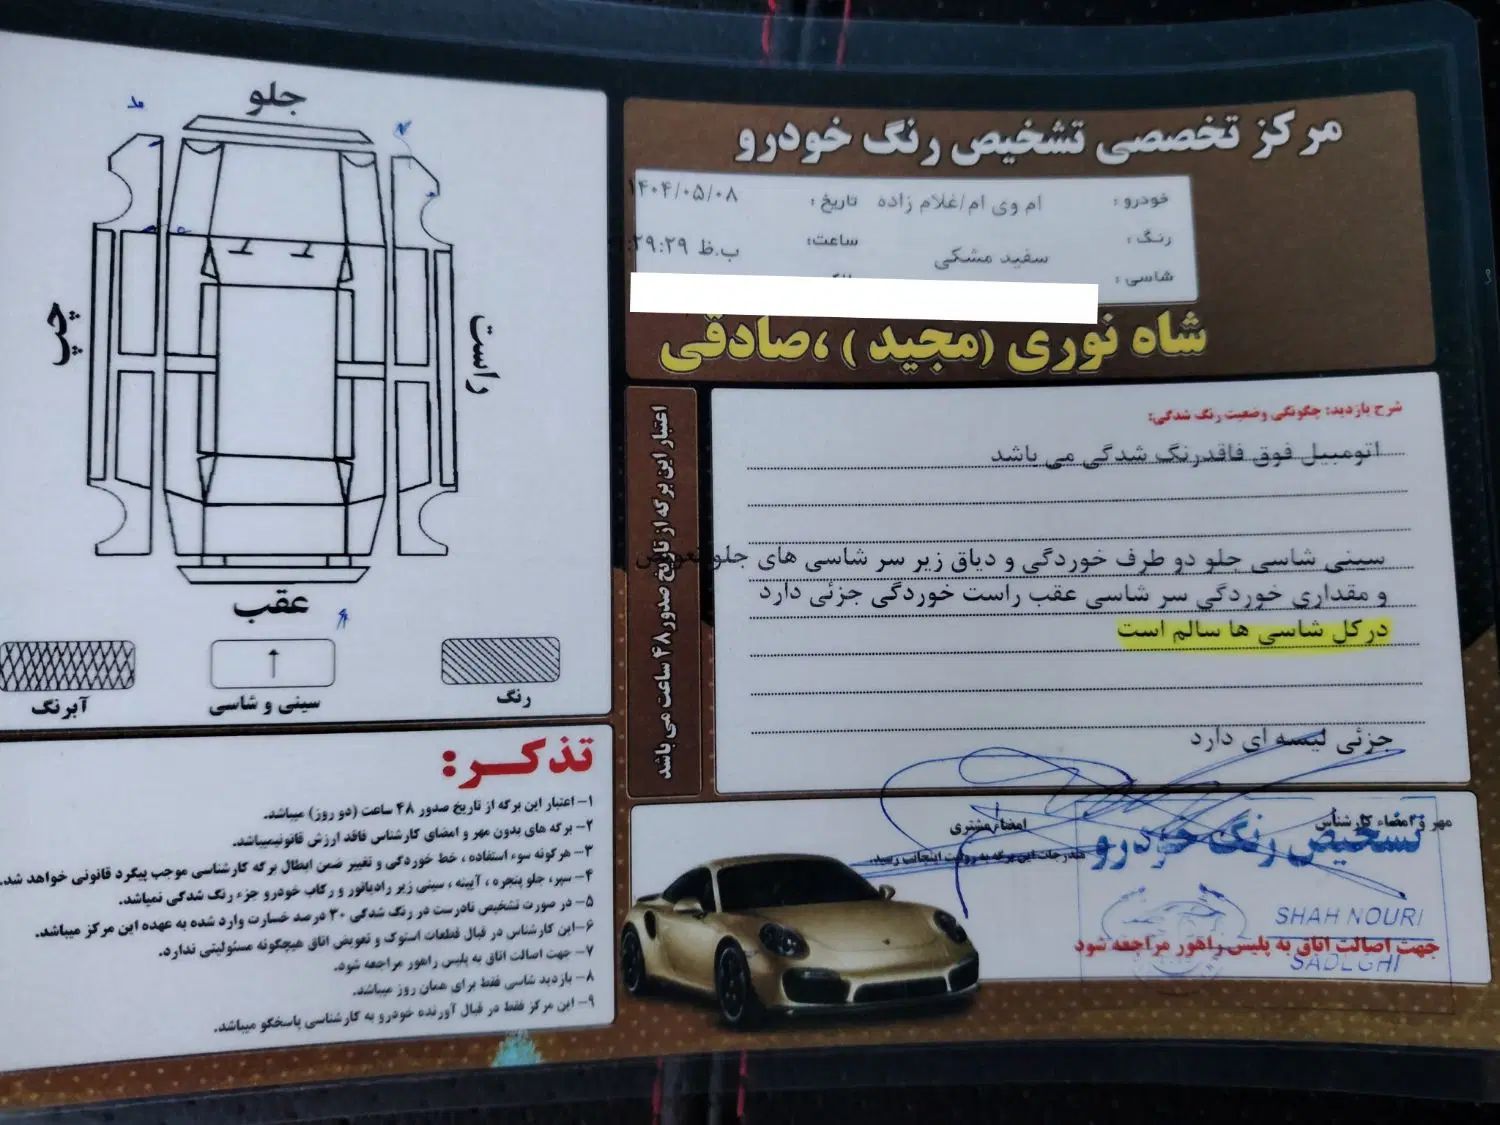 مرکز تخصصی تشخیص رنگ خودرو
خودرو : ام وی ام/غلام زاده تاریخ : ۱۴۰۴/۰۵/۰۸
رنگ : سفید مشکی ساعت: ۲۹:۲۹ ب.ظ
شاسی :
شاه نوری (مجید ) ،صادقی
جلو
چپ
راست
عقب
رنگ
سینی و شاسی
آبرنگ
اعتبار این برگه از تاریخ صدور ۴۸ ساعت می باشد
شرح بازدید: چگونگی وضعیت رنگ شدگی:
اتومبیل فوق فاقدرنگ شدگی می باشد
سینی شاسی جلو دو طرف خوردگی و دیاق زیر سر شاسی های جلو تعویض
و مقداری خوردگی سر شاسی عقب راست خوردگی جزئی دارد
درکل شاسی ها سالم است
جزئی لیسه ای دارد
تذکر:
۱- اعتبار این برگه از تاریخ صدور ۴۸ ساعت (دو روز) میباشد.
۲- برگه های بدون مهر و امضای کارشناس فاقد ارزش قانونیمیباشد.
۳- هرگونه سوء استفاده ، خط خوردگی و تغییر ضمن ابطال برگه کارشناسی موجب پیگرد قانونی خواهد شد.
۴- سپر، جلو پنجره ، آیینه ، سینی زیر رادیاتور و رکاب خودرو جزء رنگ شدگی نمیباشد.
۵- در صورت تشخیص نادرست در رنگ شدگی ۳۰ درصد خسارت وارد شده به عهده این مرکز میباشد.
۶- این کارشناس در قبال قطعات استوک و تعویض اتاق هیچگونه مسئولیتی ندارد.
۷- جهت اصالت اتاق به پلیس راهور مراجعه شود.
۸- بازدید شاسی فقط برای همان روز میباشد.
۹- این مرکز فقط در قبال آورنده خودرو به کارشناسی پاسخگو میباشد.
مهر و امضاء کارشناس
امضاء مشتری
مندرجات این برگه به رویت اینجانب رسید.
تشخیص رنگ خودرو
SHAH NOURI
جهت اصالت اتاق به پلیس راهور مراجعه شود
SADEGHI